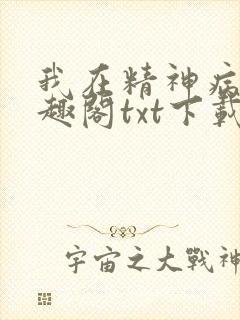 我在精神病
趣閣txt下載
宇宙之大戰神